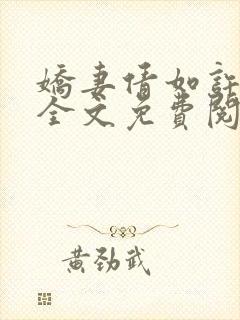 嬌妻情如許
全文免費閱
黃勁武